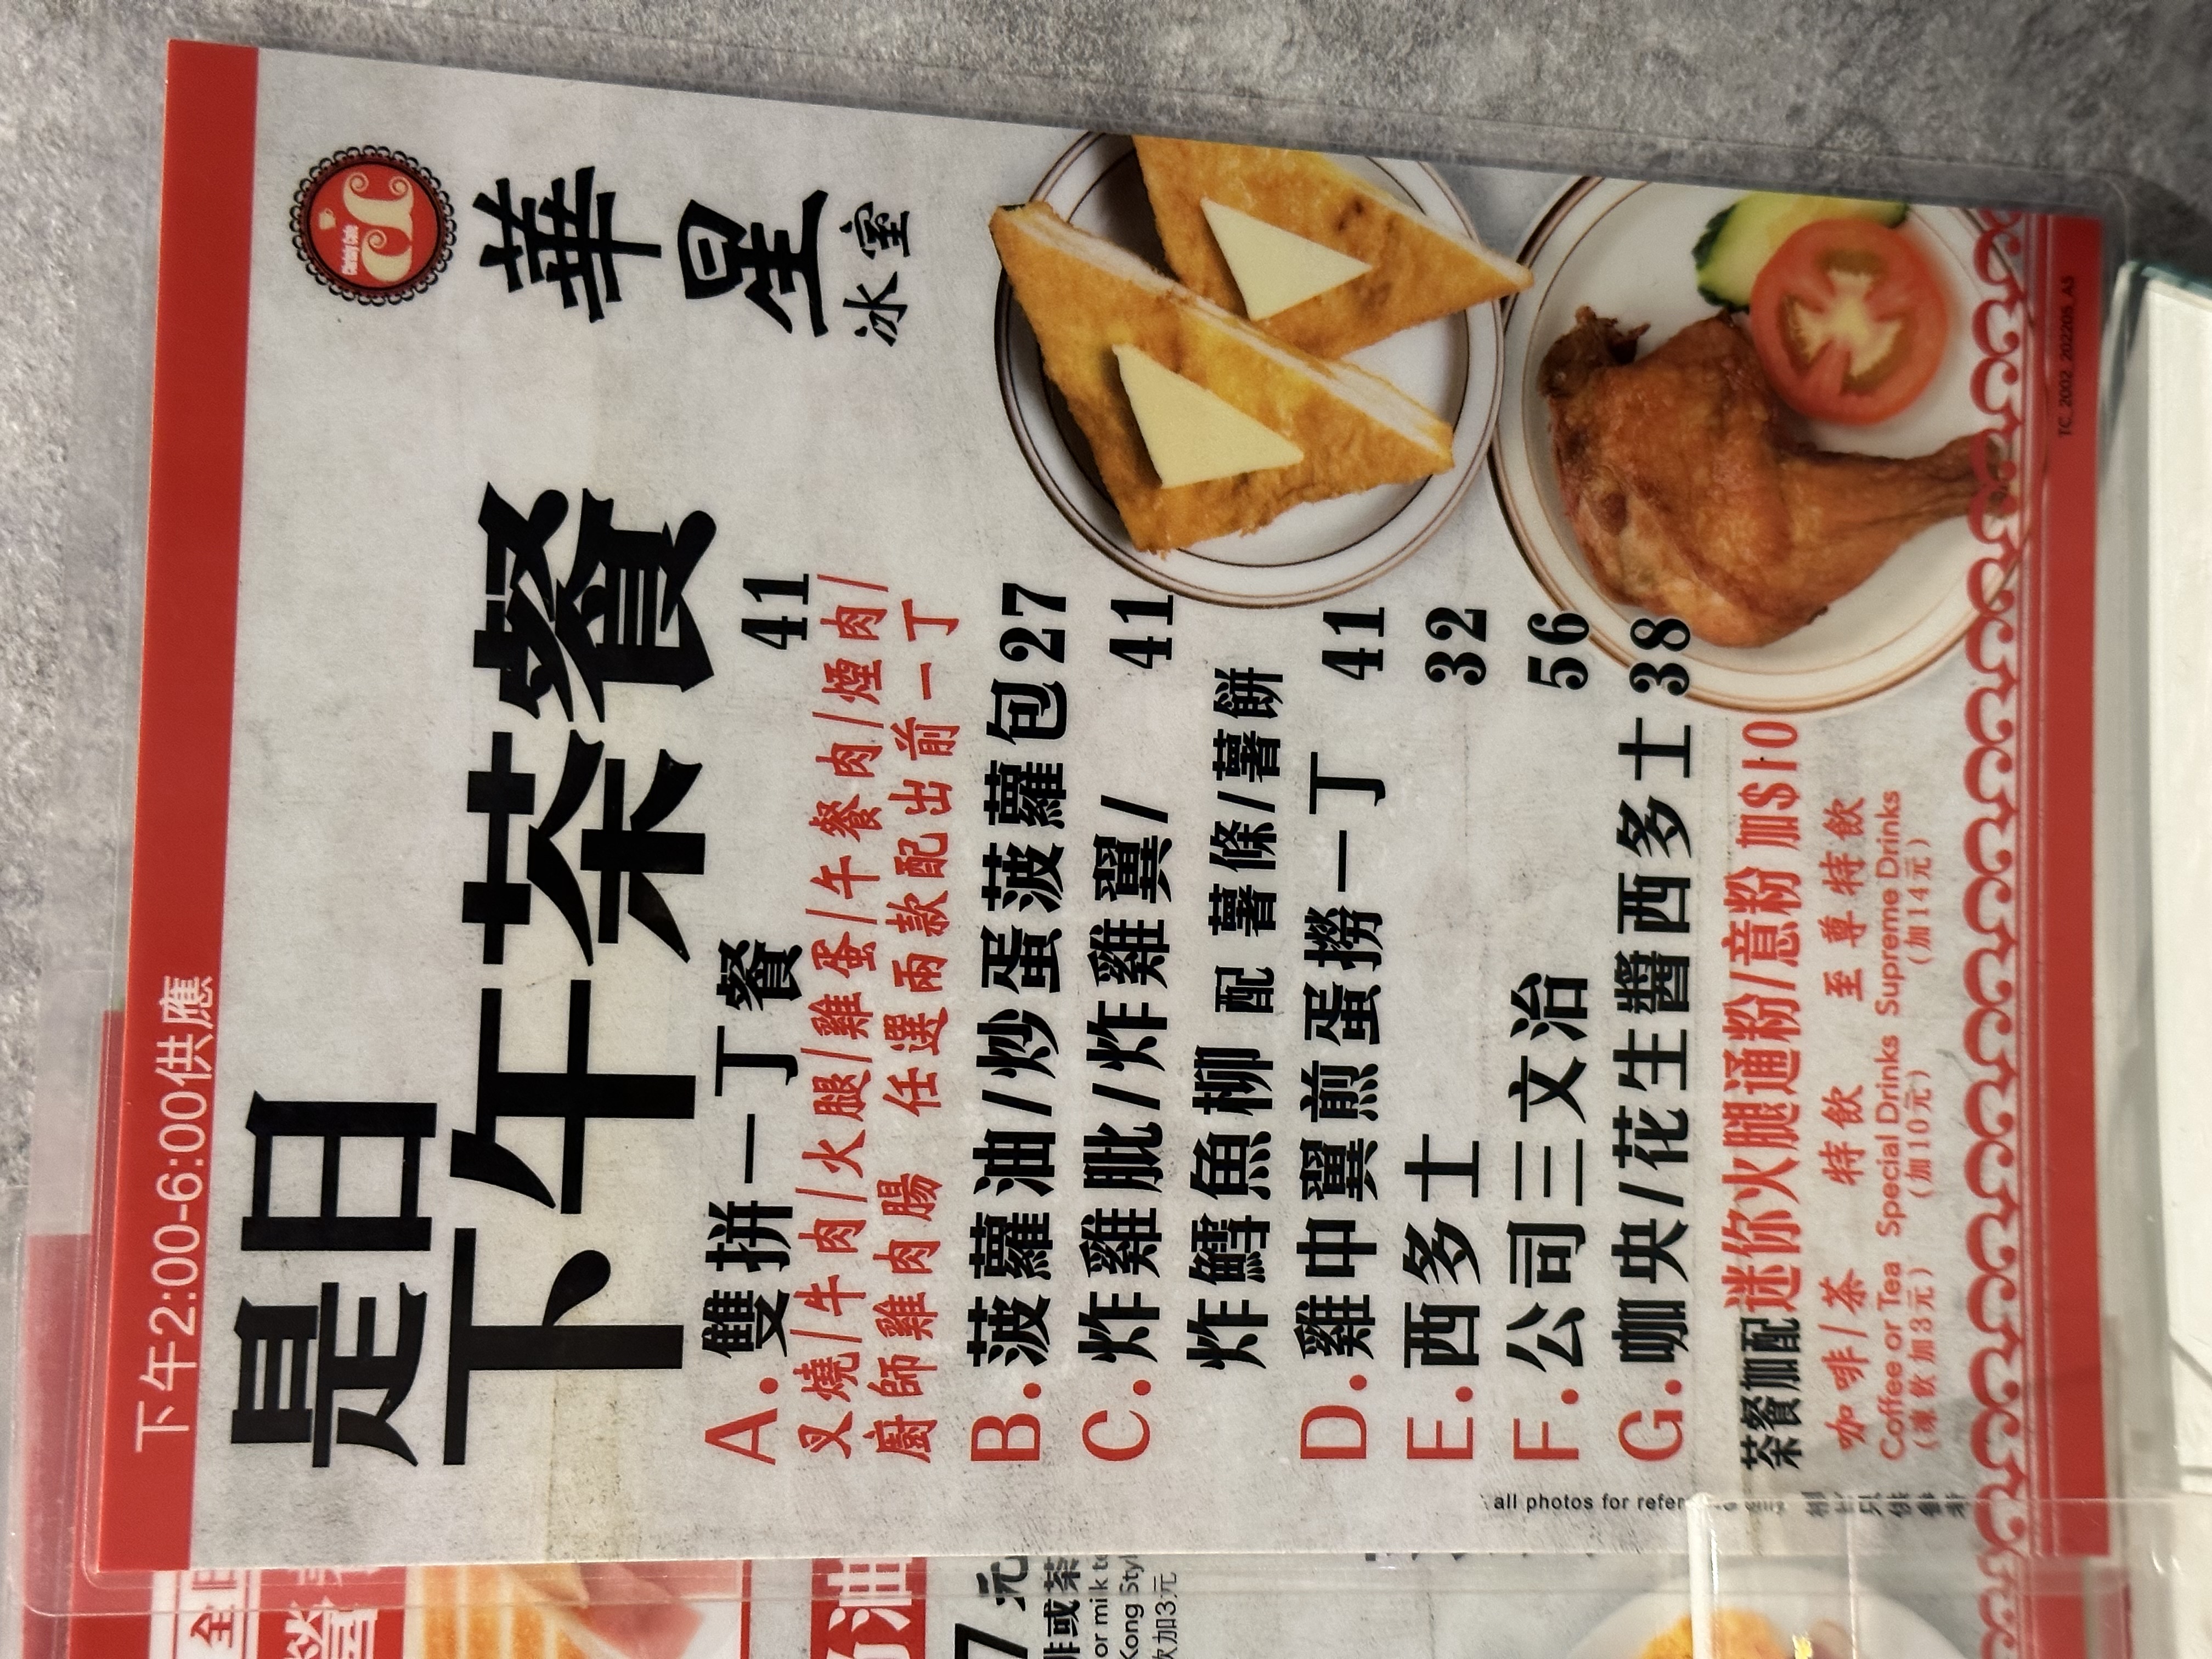 下午2:00-6:00供應
是日
下午茶餐
華星
冰室
A. 雙拼一丁餐 41
叉燒/牛肉/火腿/雞蛋/午餐肉/煙肉/
廚師雞肉腸 任選兩款配出前一丁
B. 菠蘿油/炒蛋菠蘿包 27
C. 炸雞肶/炸雞翼/ 41
炸鱈魚柳 配 薯條/薯餅
D. 雞中翼煎蛋撈一丁 41
E. 西多士 32
F. 公司三文治 56
G. 咖央/花生醬西多士 38
茶餐加配迷你火腿通粉/意粉 加$10
咖啡/茶 特飲 至尊特飲
Coffee or Tea Special Drinks Supreme Drinks
(凍飲加3元) (加10元) (加14元)
all photos for
TC_2002_202205_A5
7元
啡或茶
or milk
Kong Sty
飲加3元